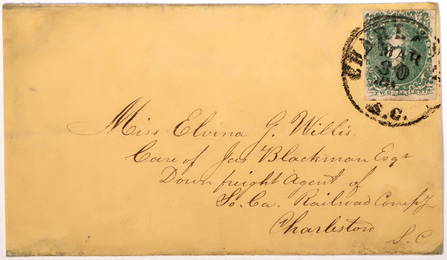 CHARLES
MAR
20
S.C.
Miss Elvina G. Willis
Care of Jas Blackman Esqr
Down freight Agent of
So. Ca. Railroad Compy
Charleston
S.C